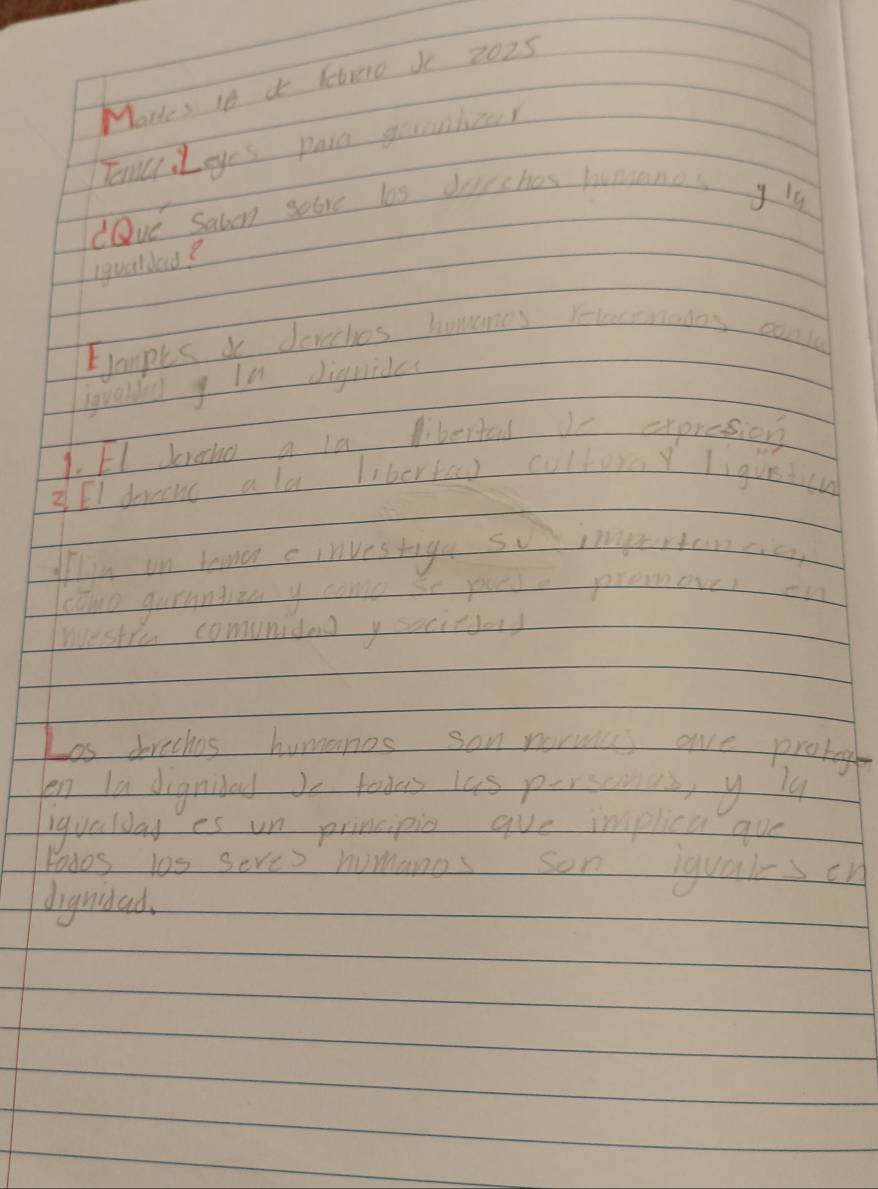 Martes 18 de Febrero de 2025
Tema: Leyes para garantizar
¿Qué Saben sobre los derechos humanos y la
igualdad?
Ejemplos de derechos humanos relacionados con la
igualdad y la dignidad
1. El derecho a la libertad de expresión
2 El derecho a la libertad cultural y ligüistica
Elija un tema e investiga su importancia,
como garantiza y como se puede promover en
nuestra comunidad y sociedad
Los derechos humanos son normas que proteg-
en la dignidad de todas las personas, y la
igualdad es un principio que implica que
todos los seres humanos son iguales en
dignidad.